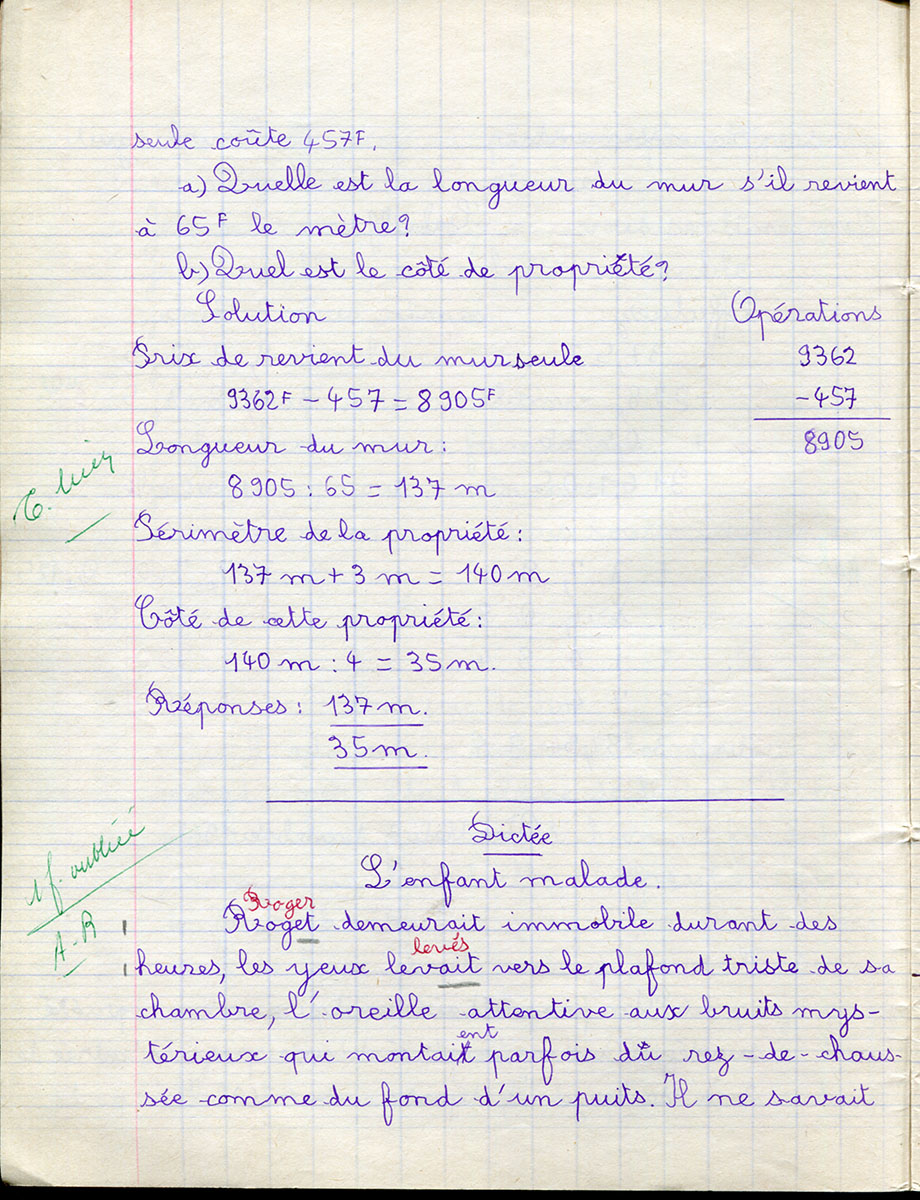 seule coûte 457F.
a) Quelle est la longueur du mur s'il revient
à 65F le mètre?
b) Quel est le côté de propriété?
Solution
Opérations
Prix de revient du mur seule
9362
9362F - 457 = 8905F
- 457
Longueur du mur :
8905
T. bien
8905 : 65 = 137 m
Périmètre de la propriété :
137 m + 3 m = 140 m
Côté de cette propriété :
140 m : 4 = 35 m.
Réponses : 137 m.
35 m.
Dictée
1 f. oubliée
L'enfant malade.
A-B
Roger
Roget demeurait immobile durant des
levés
heures, les yeux levait vers le plafond triste de sa
chambre, l'oreille attentive aux bruits mys-
ent
térieux qui montait parfois du rez-de-chaus-
sée comme du fond d'un puits. Il ne savait